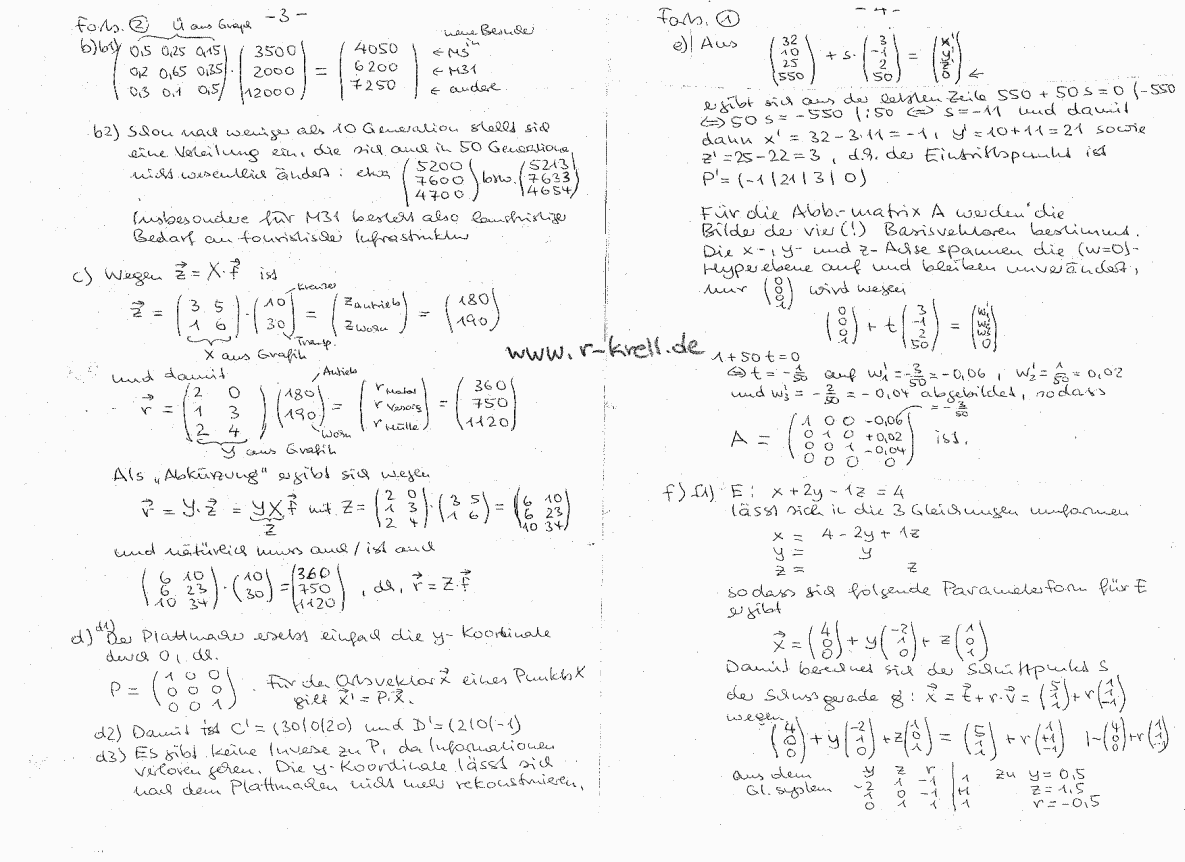 Forts. ② Ü aus Graph -3-
neue Besucher in
b) b1) (0,5 0,25 0,15) · (3500) = (4050) ← M3
(0,2 0,65 0,35) (2000) (6200) ← M31
(0,3 0,1 0,5) (12000) (7250) ← andere
b2) Schon nach weniger als 10 Generation stellt sich
eine Verteilung ein, die sich auch in 50 Generationen
nicht wesentlich ändert: etwa (5200 7600 4700) bzw. (5213 7633 4654)
Insbesondere für M31 besteht also langfristiger
Bedarf an touristischer Infrastruktur
c) Wegen z⃗ = X·f⃗ ist
Kreuzer
z⃗ = (3 5) · (10) = (z Antrieb) = (180)
(1 6) (30) (z Wohn) (190)
X aus Grafik Transp.
und damit Antrieb
r⃗ = (2 0) (180) = (r Metall) = (360)
(1 3) (190) (750)
(2 4) (r Mülle) (1120)
Y aus Grafik Wohn
Als „Abkürzung" ergibt sich wegen
r⃗ = Y·z⃗ = YX f⃗ mit Z = (2 0 / 1 3 / 2 4) · (3 5 / 1 6) = (6 10 / 6 23 / 10 34)
Z
und natürlich muss auch / ist auch
(6 10) · (10) = (360)
(6 23) (30) (750) , d.h. r⃗ = Z·f⃗
(10 34) (1120)
d) d1) Der Plattmacher ersetzt einfach die y-Koordinate
durch 0, d.h.
P = (1 0 0 / 0 0 0 / 0 0 1) . Für den Ortsvektor x⃗ eines Punktes X
gilt x⃗' = P·x⃗.
d2) Damit ist C' = (30|0|20) und D' = (2|0|-1)
d3) Es gibt keine Inverse zu P, da Informationen
verloren gehen. Die y-Koordinate lässt sich
nach dem Plattmachen nicht mehr rekonstruieren.
www.r-krell.de
-4-
Forts. ①
e) Aus (32 / 10 / 25 / 550) + s·(3 / -1 / 2 / 50) = (x' / y' / z' / 0) ←
ergibt sich aus der letzten Zeile 550 + 50 s = 0 |-550
⇔ 50 s = -550 |:50 ⇔ s = -11 und damit
dann x' = 32 - 3·11 = -1, y' = 10+11 = 21 sowie
z' = 25-22 = 3, d.h. der Eintrittspunkt ist
P' = (-1|21|3|0)
Für die Abb.-matrix A werden die
Bilder der vier(!) Basisvektoren bestimmt.
Die x-, y- und z-Achse spannen die (w=0)-
Hyperebene auf und bleiben unverändert,
nur (0 / 0 / 0 / 1) wird wegen
(0 / 0 / 0 / 1) + t (3 / -1 / 2 / 50) = (w₁' / w₂' / w₃' / 0)
1 + 50 t = 0
⇔ t = -1/50 auf w₁' = -3/50 = -0,06, w₂' = 1/50 = 0,02
und w₃' = -2/50 = -0,04 abgebildet, sodass
= -3/50
A = (1 0 0 -0,06)
(0 1 0 +0,02) ist.
(0 0 1 -0,04)
(0 0 0 0)
f) f1) E: x + 2y - 1z = 4
lässt sich in die 3 Gleichungen umformen
x = 4 - 2y + 1z
y = y
z = z
sodass sich folgende Parameterform für E
ergibt
x⃗ = (4 / 0 / 0) + y (-2 / 1 / 0) + z (1 / 0 / 1)
Damit berechnet sich der Schnittpunkt S
der Schussgerade g: x⃗ = t⃗ + r·v⃗ = (5 / 1 / 1) + r (1 / 1 / -1)
wegen
(4 / 0 / 0) + y (-2 / 1 / 0) + z (1 / 0 / 1) = (5 / 1 / 1) + r (1 / +1 / -1) |-(4 / 0 / 0) + r (1 / 1 / -1)
aus dem y z r
Gl.system -2 1 -1 | 1 zu y = 0,5
1 0 -1 | +1 z = 1,5
0 1 1 | 1 r = -0,5